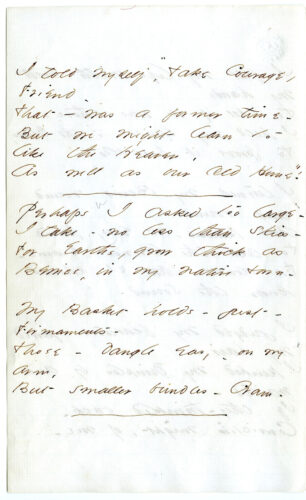 I told myself, "Take Courage,
Friend -
That - was a former time -
But we might learn to
like the Heaven,
As well as our Old Home"!
Perhaps I asked too large -
I take - no less than skies -
For Earths, grow thick as
Berries, in my native town -
My Basket holds - just -
Firmaments -
Those - dangle easy, on my
arm,
But smaller bundles - Cram.